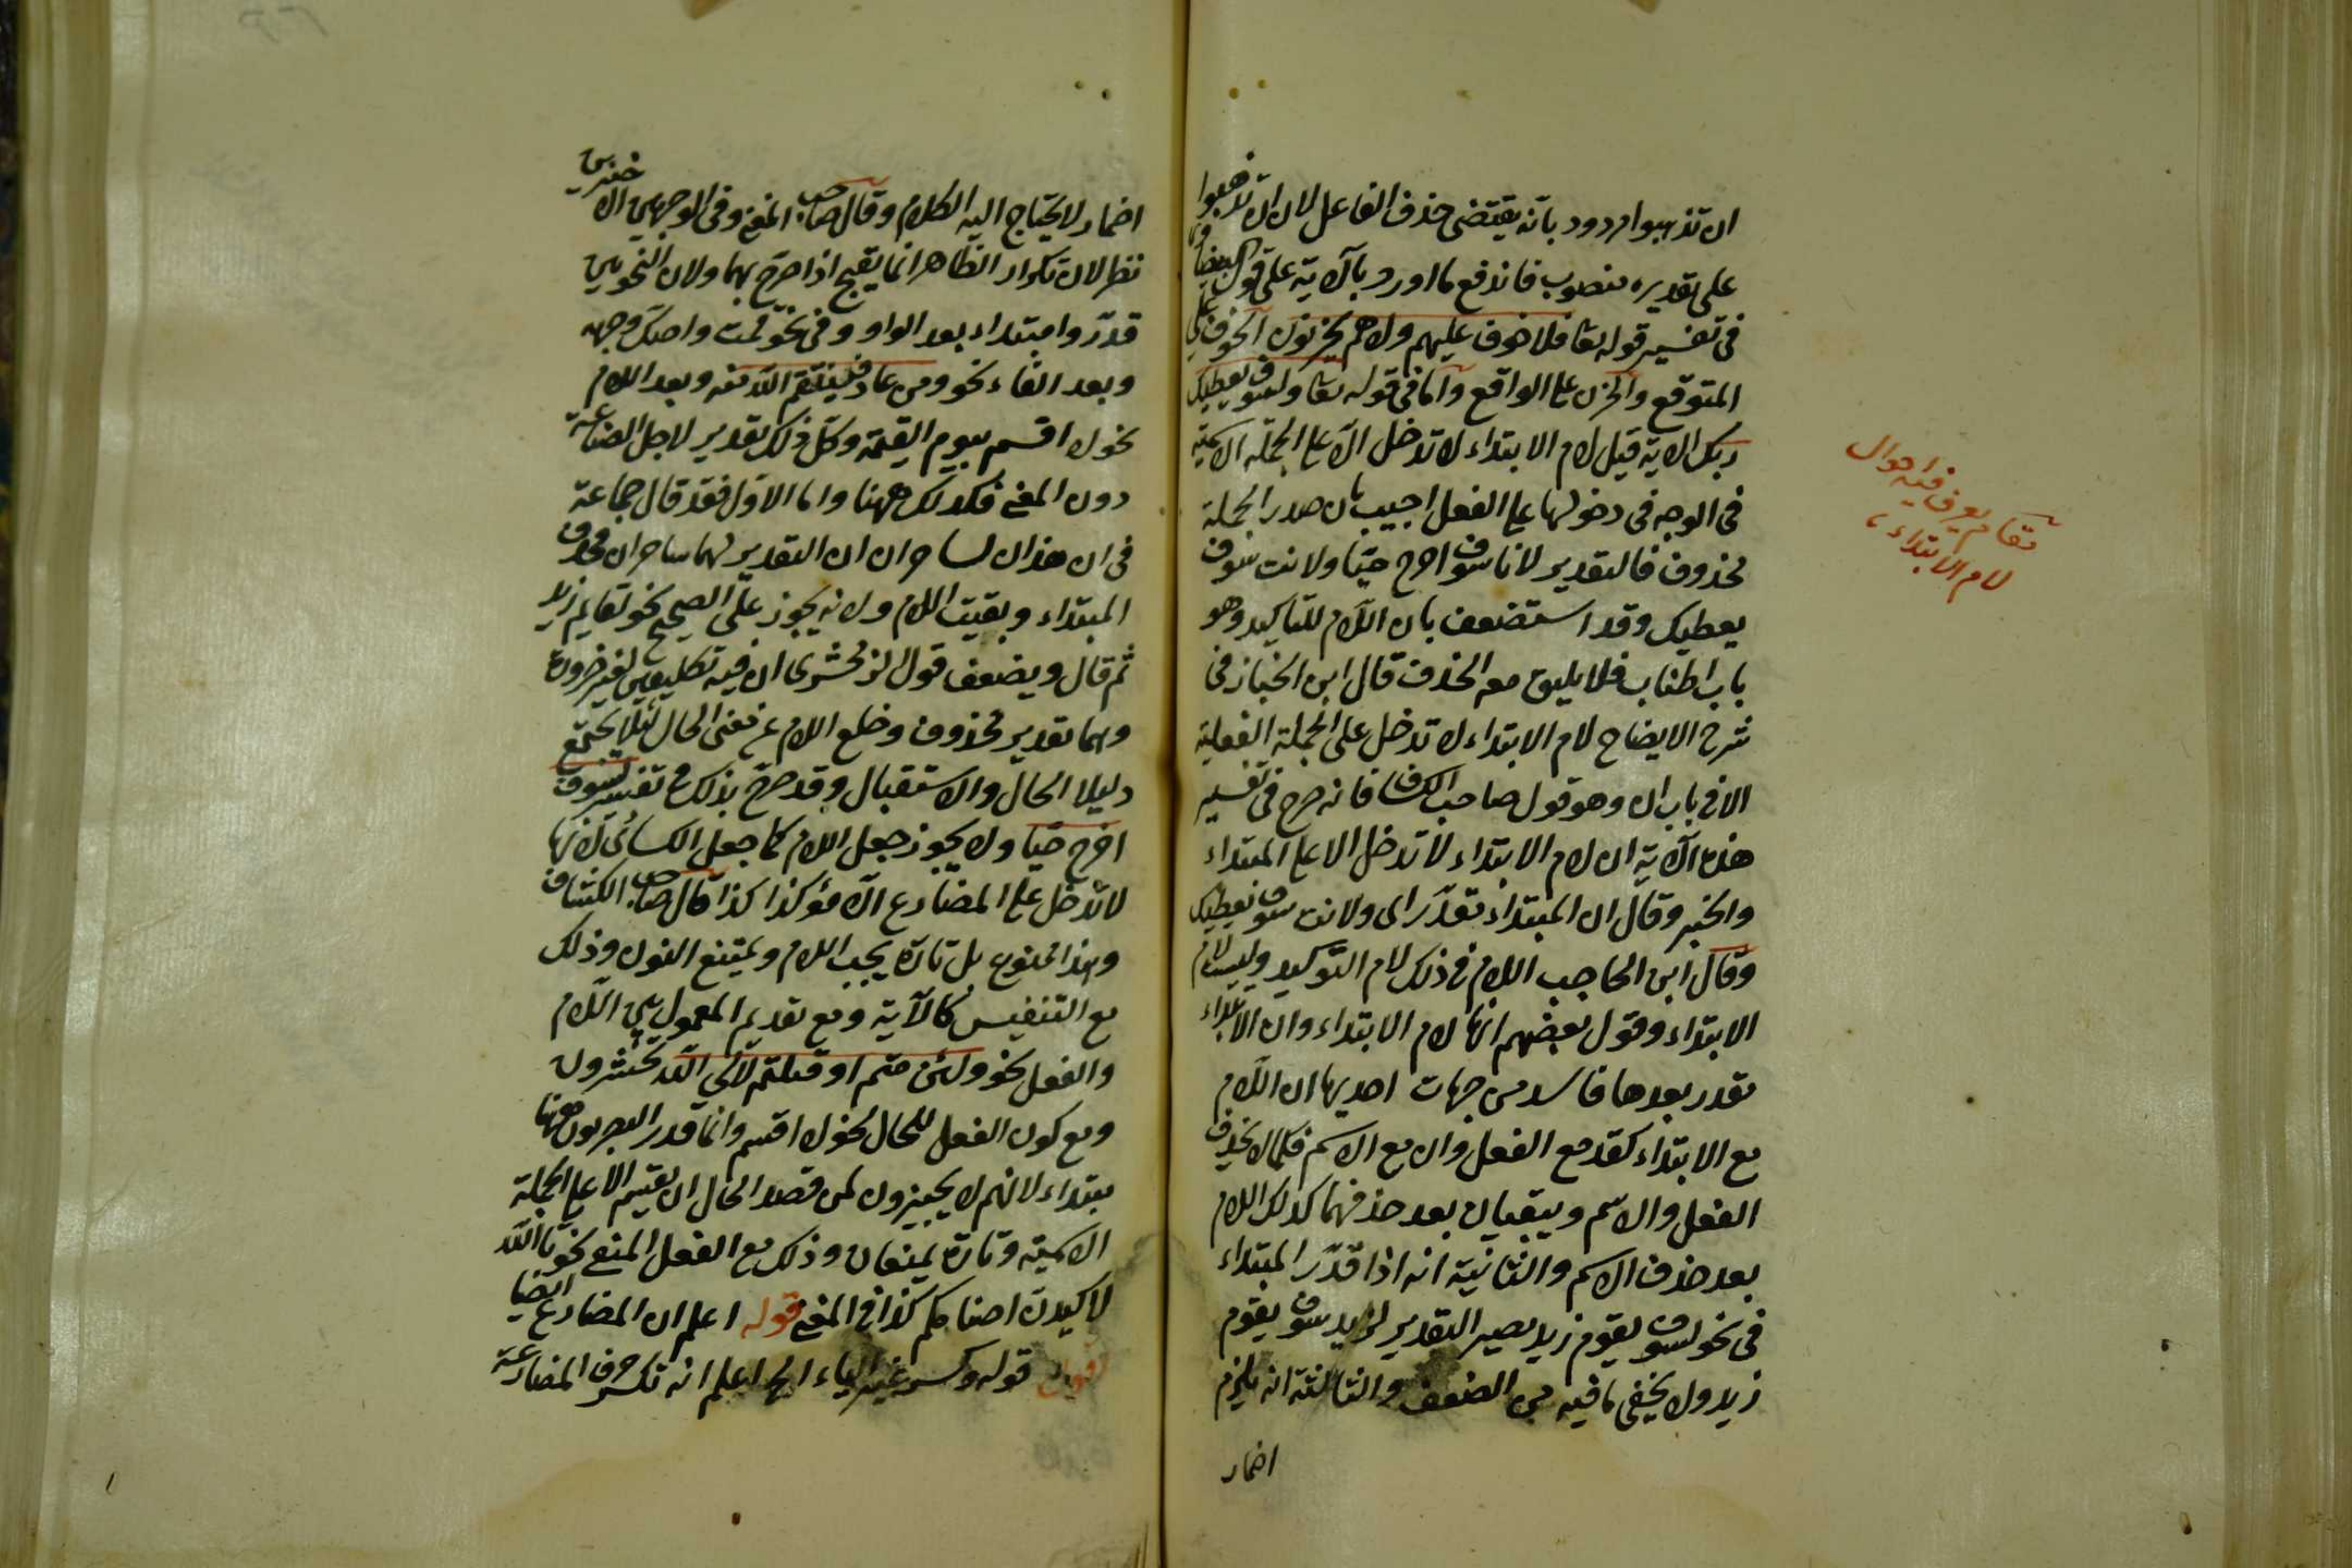 ان تذهبوا مردود بانه يقتضى حذف الفاعل لان ان تذهبوا
على تقديره منصوب فاندفع ما اورد بالآية على قول البيضاوى
فى تفسير قوله تعا فلا خوف عليهم ولا هم يحزنون الخوف على
المتوقع والحزن على الواقع واما فى قوله تعا ولسوف يعطيك
ربك الآية قيل لام الابتداء لا تدخل الا على الجملة الاسمية
فى الوجه فى دخولها على الفعل اجيب بان صدر الجملة
محذوف فالتقدير لانا سوف اخرج حيّا ولانت سوف
يعطيك وقد استضعف بان اللام للتاكيد وهو
باب اطناب فلا يليق معه الحذف قال ابن الخباز فى
شرح الايضاح لام الابتداء لا تدخل على الجملة الفعلية
الا فى باب ان وهو قول صاحب الكشاف فانه صرح فى تفسير
هذه الآية ان لام الابتداء لا تدخل الا على المبتداء
والخبر وقال ان المبتداء مقدّر اى ولانت سوف يعطيك
وقال ابن الحاجب اللام فى ذلك لام التوكيد وليست لام
الابتداء وقول بعضهم انها لام الابتداء وان الابتداء
مقدر بعدها فاسد من جهات احديها ان اللام
مع الابتداء كقد مع الفعل وان مع الاسم فكما لا يحذف
الفعل والاسم ويبقيان بعد حذفهما كذلك اللام
بعد حذف الاسم والثانية انه اذا قدّر المبتداء
فى نحو لسوف يقوم زيد يصير التقدير لزيد سوف يقوم
زيد ولا يخفى ما فيه من الضعف والثالثة انه يلزم
اضمار
مقام يعرف فيه احوال
لام الابتداء
اضمار لا يحتاج اليه الكلام وقال صاحب المغنى وفى الوجهين الاخيرين
نظر لان تكرار الظاهر انما يقبح اذا صرح بهما ولان النحويين
قدّروا مبتداء بعد الواو وفى نحو قمت واصكّ وجهه
وبعد الفاء نحو ومن عاد فينتقم الله منه وبعد اللام
نحو لا اقسم بيوم القيمة وكل ذلك تقدير لاجل الصناعة
دون المعنى فكذلك ههنا واما الاول فقد قال جماعة
فى ان هذان لساحران ان التقدير لهما ساحران فحذف
المبتداء وبقيت اللام ولانه يجوز على الصحيح نحو لقايم زيد
ثم قال ويضعف قول الزمخشرى ان فيه تكليفين لغير ضرورة
وهما تقدير محذوف وخلع اللام عن معنى الحال لئلا يجتمع
دليلا الحال والاستقبال وقد صرح بذلك فى تفسير لسوف
اخرج حيّا ولا يجوز جعل اللام كما جعل الكسائى لانها
لا تدخل على المضارع الا مؤكدا كذا قال صاحب الكشاف
وهذا ممنوع بل تارة يجب اللام ويمتنع النون وذلك
مع التنفيس كالآية ومع تقديم المعمول بين اللام
والفعل نحو ولئن متم او قتلتم لالى الله تحشرون
ومع كون الفعل للحال نحو لا اقسم وانما قدر البصريون ههنا
مبتداء لانهم لا يجيزون لمن قصد الحال ان يقسم الا على الجملة
الاسمية وتارة يمتنعان وذلك مع الفعل المنفى نحو تالله
لاكيدن اصنامكم كذا فى المغنى قوله اعلم ان المضارع ايضا
اقول قوله وكسر غير الياء الخ اعلم انه تكسر حرف المضارعة